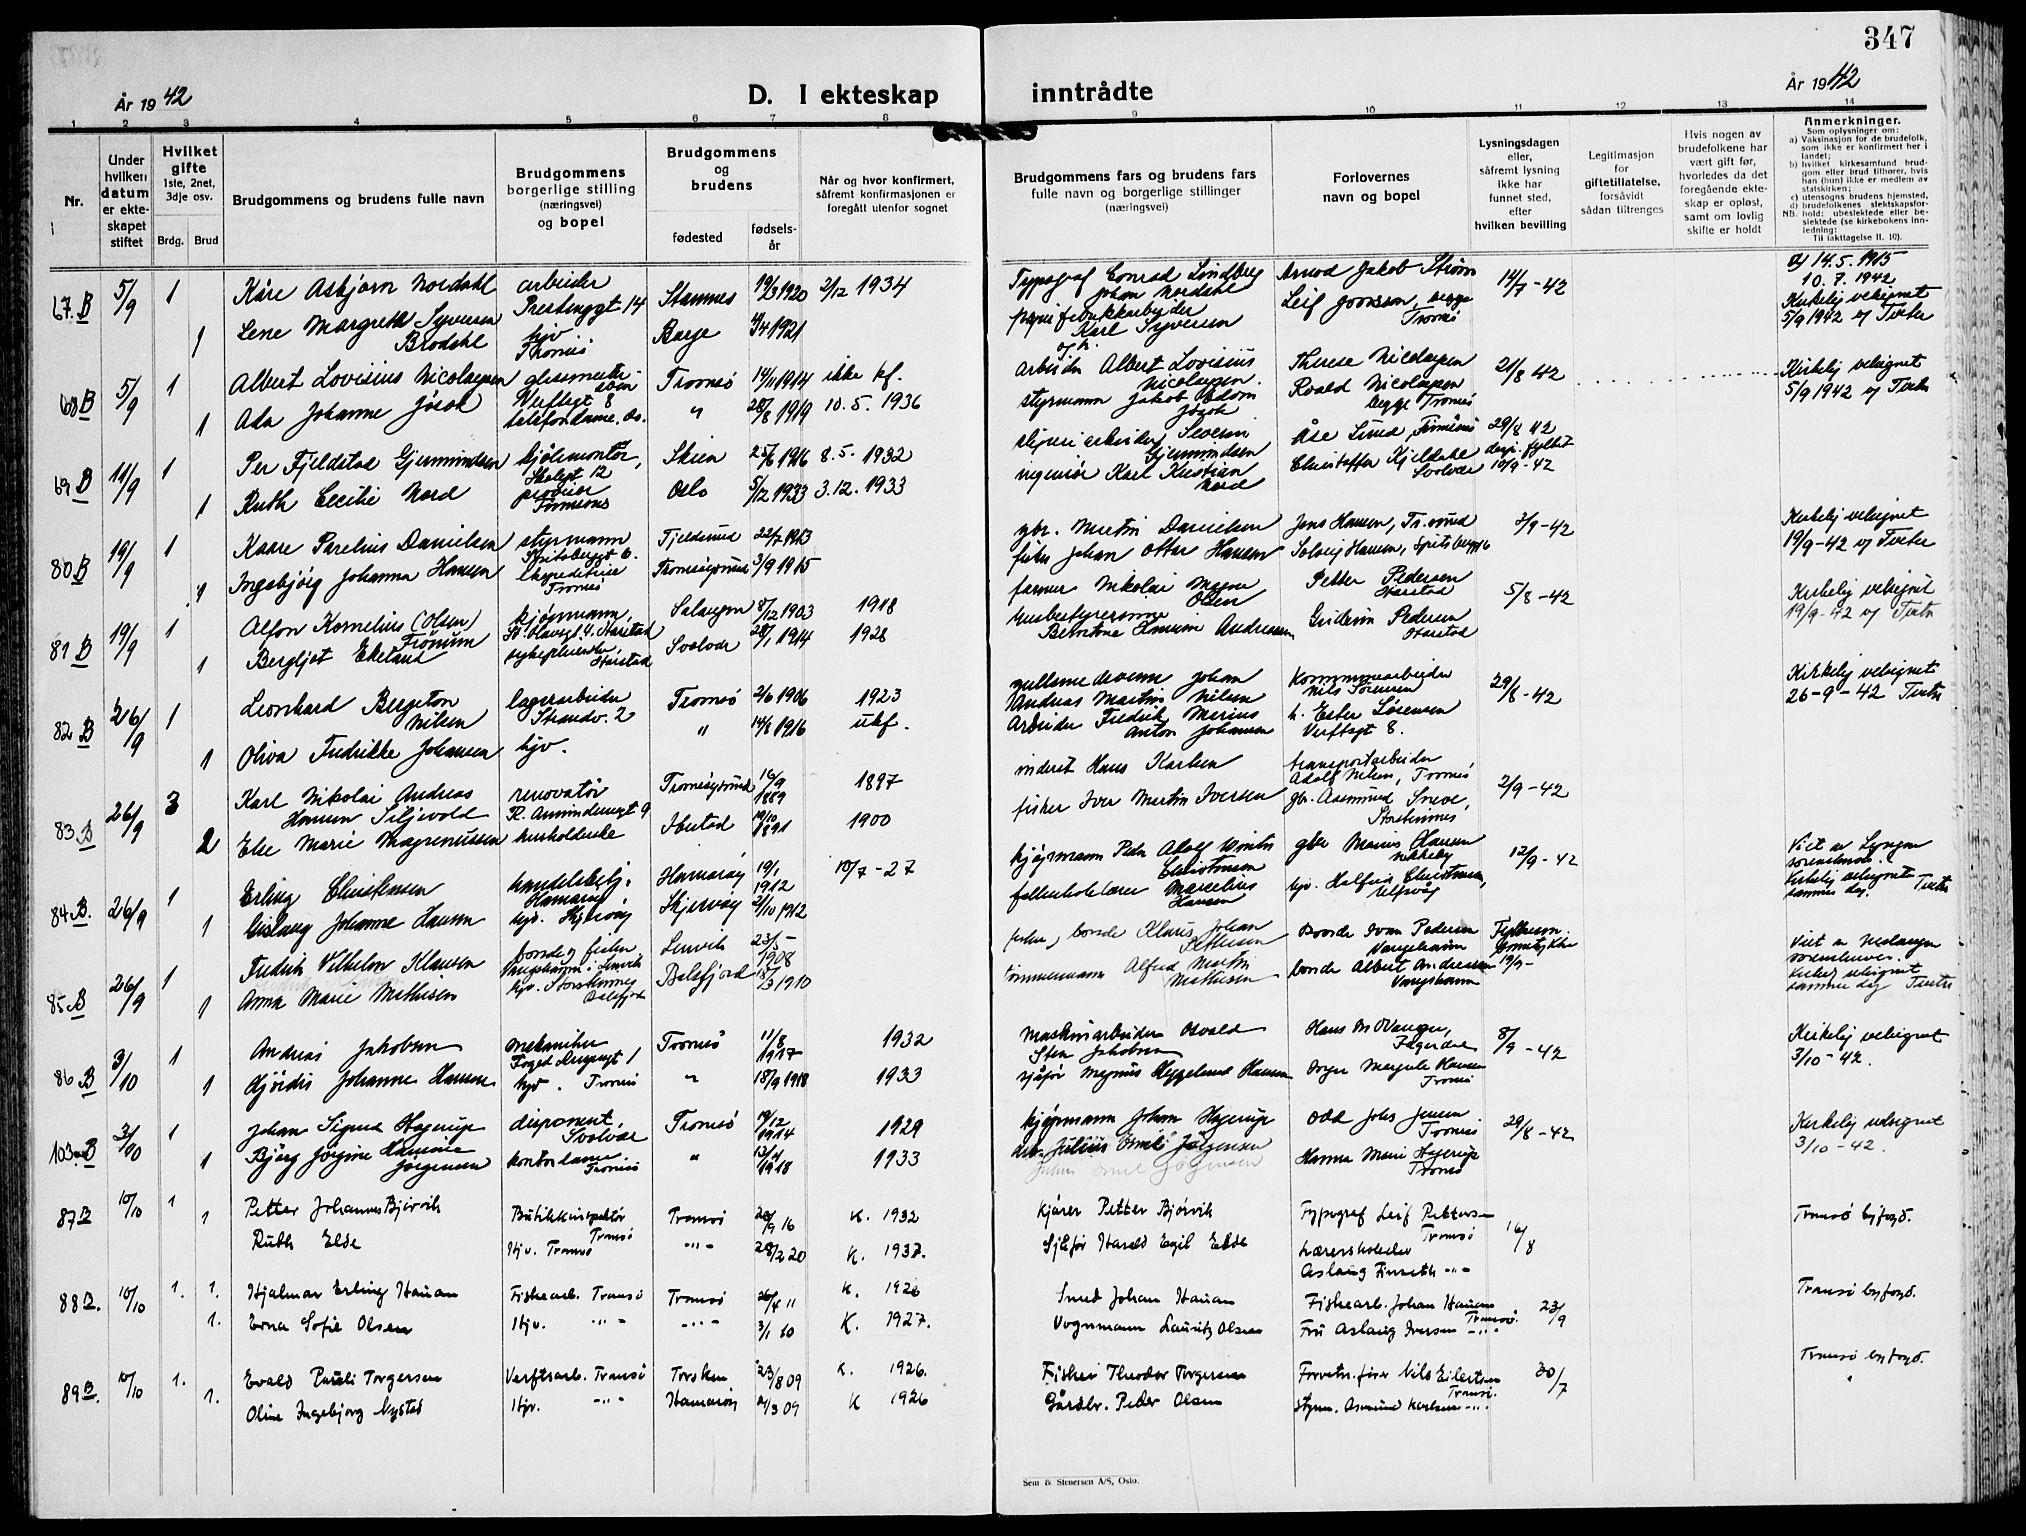 347
År 1942
D. I ekteskap
inntrådte
År 1942
1 2 3 4 5 6 7 8
9 10 11 12 13 14
Nr.
Under hvilken datum er ekteskapet stiftet
Hvilket gifte
1ste, 2net, 3dje osv.
Brdg. Brud
Brudgommens og brudens fulle navn
Brudgommens borgerlige stilling (næringsvei) og bopel
Brudgommens og brudens
fødested
fødselsår
Når og hvor konfirmert, såfremt konfirmasjonen er foregått utenfor sognet
Brudgommens fars og brudens fars fulle navn og borgerlige stillinger (næringsvei)
Forlovernes navn og bopel
Lysningsdagen eller, såfremt lysning ikke har funnet sted, efter hvilken bevilling
Legitimasjon for giftetillatelse, forsåvidt sådan tiltrenges
Hvis nogen av brudefolkene har vært gift før, hvorledes da det foregående ekteskap er opløst, samt om lovlig skifte er holdt
Anmerkninger.
Som oplysninger om:
a) Vaksinasjon for de brudefolk, som ikke er konfirmert her i landet;
b) hvilket kirkesamfund brudgom eller brud tilhører, hvis han (hun) ikke er medlem av statskirken;
c) utensogns brudens hjemsted,
d) brudefolkenes slektskapsforhold: ubeslektede eller beslektede (se kirkebokens innledning:
NB.
Til iakttagelse II. 10).
67.B 5/9 1 Kåre Asbjørn Nordahl arbeider Prestengt 14 Stamnes 19/3 1920 2/12 1934
Typograf Conrad Lindberg Johan Nordahl Arnod Jakob Strøm 14/7-42
14.5.1915 10.7.1942
1 Lene Margreth Syversen Brodahl hjv Tromsø Borge 4/4 1921
papirfabrikkarbeider Karl Syversen Leif Joensen, begge Tromsø
Kirkelig velsignet 5/9 1942 og Tveter
68B 5/9 1 Albert Lovisius Nicolaysen Verftsgt 8 Tromsø 14/11 1914 ikke kf.
arbeider Albert Lovisius Nicolaysen Therese Nicolaysen 21/8 42
Kirkelig velsignet 5/9 1942 og Tveter
1 Ada Johanne telefondame " 28/8 1919 10.5.1936
styrmann Jakob Roald Nicolaysen begge Tromsø
69 B 11/9 1 Per Fjeldstad Gjermundsen kjølemontør, Skolegt 12 Skien 25/6 1916 8.5.1932
sliperiarbeider Severin Gjermundsen Åse Lund, 29/8 42
1 Ruth Cecilie Nord Oslo 5/12 1933 3.12.1933
ingeniør Karl Kristian Nord Christoffer Kjeldahl Svolvær 10/9-42
80 B 19/9 1 Kaare Parelius Danielsen styrmann Spitsbergt 6. Tjeldsund 22/7 1913
gbr. Martin Danielsen Jens Hansen, Tr.sund 3/9-42
Kirkelig velsignet 19/9-42 og Tveter
1 Ingebjørg Johanna Hansen Ekspeditrise Tromsø Tromsøysund 3/9 1915
fisker Johan Ottar Hansen Solveig Hansen, Spitsbergt 6
81 B 19/9 1 Alfon Kornelius (Olsen) Frönum kjøpmann, St. Olavsgt 4. Harstad Salangen 8/12 1903 1918
farmer Nikolai Magne Olsen Petter Pedersen Harstad 5/8-42
Kirkelig velsignet 19/9-42 og Tveter
1 Bergljot Ekeland sykepleierske, Harstad Svolvær 28/1 1914 1928
husbestyrerinne Andreassen Pedersen Harstad
82 B 26/9 1 Leonhard Bergeton Nilsen lagerarbeider Strandv. 2 Tromsø 2/6 1906 1923
Andreas Martin Nilsen kommunearbeider Nils Sørensen 29/8-42
Kirkelig velsignet 26-9-42 Tveter
1 Oliva Fredrikke Johansen hjv. " 14/8 1916 ukf.
Arbeider Fredrik Marius Anton Johansen h. Ester Sørensen Verftsgt 8.
83.B 26/9 3 Karl Nikolai Andreas Hansen Siljevold renovatør R. Amundsensgt 9 Tromsøysund 16/9 1889 1897
inderst Hans Karlsen transportarbeider Adolf Nilsen, Tromsø 2/9-42
2 Else Marie Magnussen husholderske Ibestad 19/10 1891 1900
fisker Iver Martin Iversen gbr. Asmund Sneve, Storsteinnes
84 B. 26/9 1 Erling Christensen handelsbetj. Hamarøy Hamarøy 19/1 1912 10/7-27
kjøpmann Peder Adolf Winter Christensen gbr Marius Hansen 12/9-42
Viet av Lyngen sorenskriver. Kirkelig velsignet samme dag. Tveter
1 Gislaug Johanne Hansen hjv. Skjervøy Skjervøy 2/10 1912
Marcelius Hansen hjv. Halfrid Christensen, Ulfsvåg
85 B 26/9 1 Fredrik Vilhelm Klausen bonde og fisker Vangshamn. Lenvik Lenvik 23/5-1908
fisker, bonde Klaus Johan Bonde Ivan Pedersen Vangshamn 19/9-
Viet av Malangen sorenskriver. Kirkelig velsignet samme dag Tveter
1 Anna Marie Mathisen hjv. Storsteinnes Balsfjord Balsfjord 18/3 1910
tømmermann Alfred Martin Mathisen bonde Albert Andreassen Vangshamn
86 B 3/10 1 Andreas Jakobsen mekaniker Foged Dreyersgt 1 Tromsø 11/8 1917 1932
Maskinarbeider Osvald Sten Jakobsen Hans M. Fagerdre 8/9-42
Kirkelig velsignet 3/10-42.
1 Hjördis Johanne Hansen hjv. Tromsø " 18/9 1918 1933
sjåfør Magnus Heggelund Hansen Margrete Hansen Tromsø
103 B 3/10 1 Johan Sigurd Hagerup disponent, Svolvær Tromsø 19/12 1914 1929
kjøpmann Johan Hagerup Odd Johs Jensen Tromsø 29/8-42
Kirkelig velsignet 3/10-42.
1 Bjørg Jørgine Jørgensen kontordame Tromsø " 13/4 1918 1933
arb. Julius Emil Jørgensen Hanna Marie Hagerup Tromsø
87 B 10/10 1 1 Petter Johannes Bjørvik Butikkinspektør Tromsø Tromsø 28/9 16 K. 1932
Kjører Petter Bjørvik Typograf Leif Pettersen Tromsø 16/8
Tromsø byfogd.
Ruth Elde Hjv. Tromsø -"- 28/2 20 K. 1937.
Sjåfør Harald Egil Elde Aslaug Finseth -"-
88 B. 10/10 1. 1. Hjalmar Erling Hauan Fiskearb. Tromsø Tromsø 26/4 11 K. 1926
Smed Johan Hauan Fiskearb. Johan Hauan Tromsø. 23/9
Tromsø byfogd.
1. Erna Sofie Olsen Hjv. -"- -"- 3/1 10 K. 1927.
Vognmann Lauritz Olsen Fru Aslaug Iversen -"-
89 B 10/10 1. Evald Pauli Torgersen Verftsarb. Tromsø Torsken 23/8 09 K. 1926.
Fisker Theodor Torgersen Forretn.fører Nils Eilertsen Tromsø. 30/7
Tromsø byfogd.
1. Oline Ingebjørg Nystad Hjv. -"- Hamarøy 2/3 09 K 1926
Gårdbr. Peder Olsen Styrm. Asmund Karlsen -"-
Sem & Stenersen A/S, Oslo.